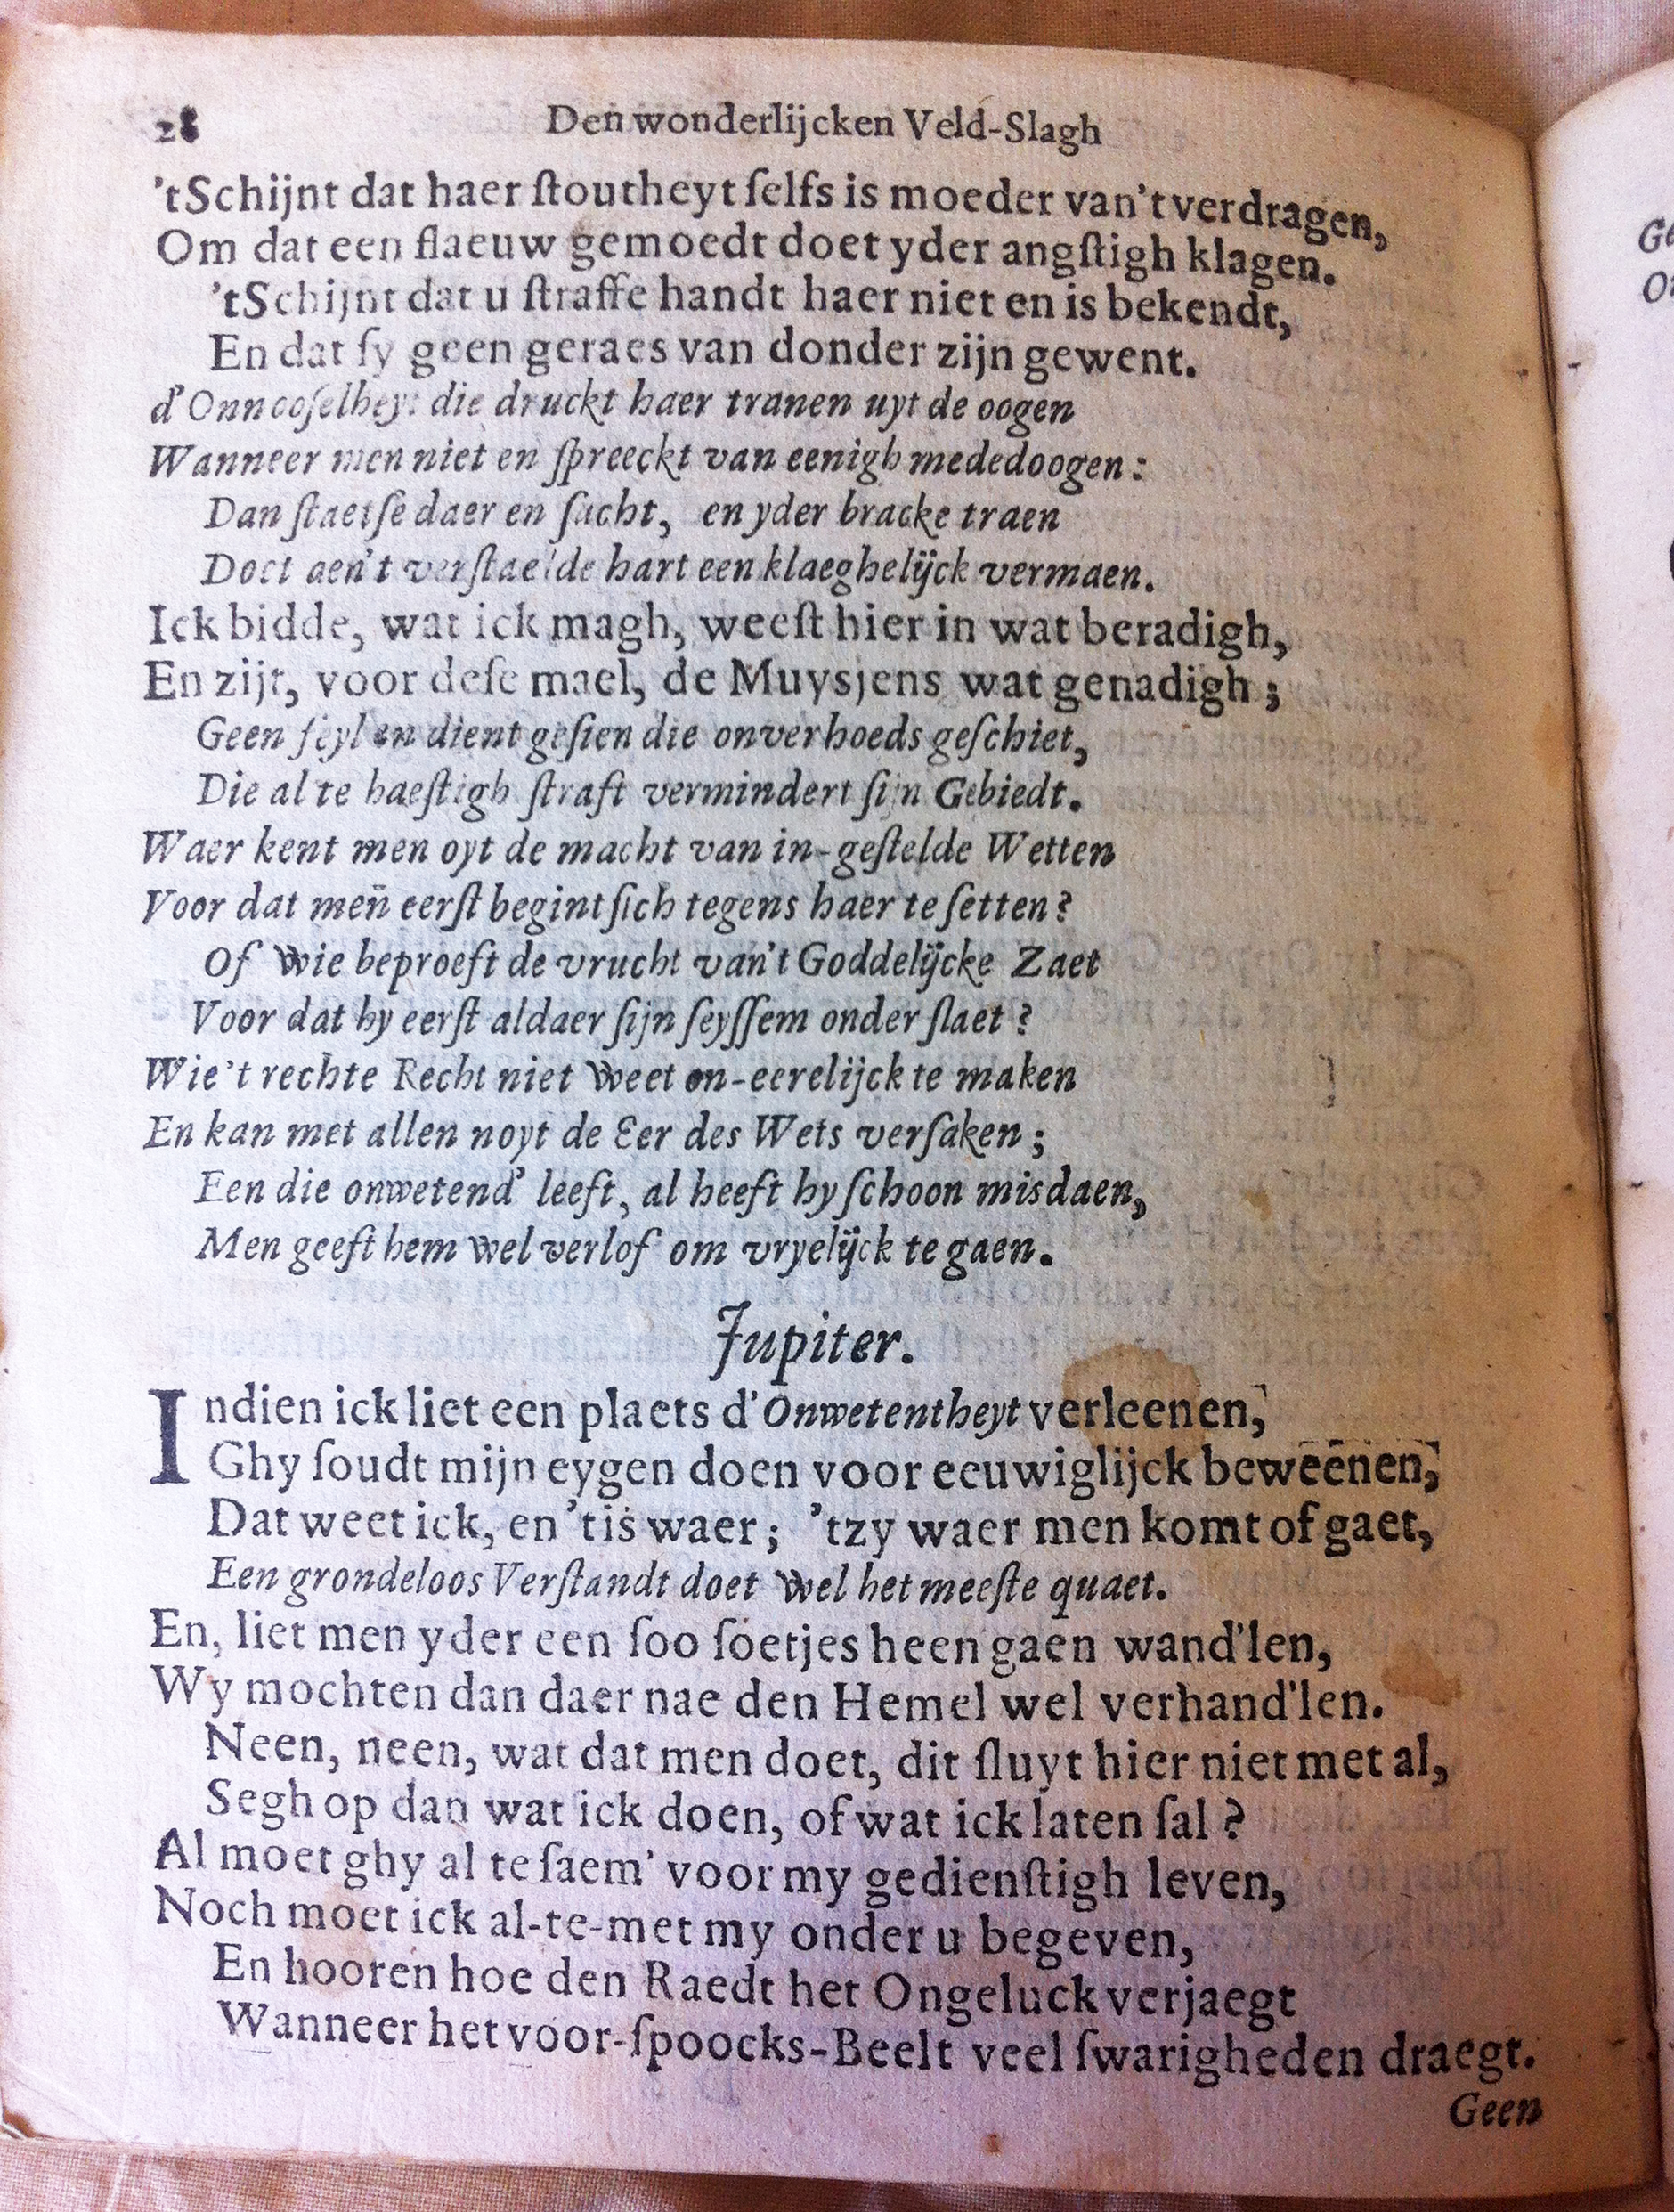 28 Den wonderlijcken Veld-Slagh
'tSchijnt dat haer ſtoutheyt ſelfs is moeder van't verdragen,
Om dat een flaeuw gemoedt doet yder angſtigh klagen.
'tSchijnt dat u ſtraffe handt haer niet en is bekendt,
En dat ſy geen geraes van donder zijn gewent.
d'Onnooſelheyt die druckt haer tranen uyt de oogen
Wanneer men niet en ſpreeckt van eenigh mededoogen:
Dan ſtaetſe daer en ſucht, en yder bracke traen
Doet aen't verſtaelde hart een klaeghelijck vermaen.
Ick bidde, wat ick magh, weeſt hier in wat beradigh,
En zijt, voor deſe mael, de Muysjens wat genadigh;
Geen feyl en dient geſien die onverhoeds geſchiet,
Die al te haeſtigh ſtraft vermindert ſijn Gebiedt.
Waer kent men oyt de macht van in-geſtelde Wetten
Voor dat men̄ eerſt begint ſich tegens haer te ſetten?
Of wie beproeft de vrucht van't Goddelijcke Zaet
Voor dat hy eerſt aldaer ſijn ſeyſſem onder ſlaet?
Wie't rechte Recht niet weet on-eerelijck te maken
En kan met allen noyt de Eer des Wets verſaken;
Een die onwetend' leeft, al heeft hy ſchoon misdaen,
Men geeft hem wel verlof om vryelijck te gaen.
Jupiter.
Indien ick liet een plaets d'Onwetentheyt verleenen,
Ghy ſoudt mijn eygen doen voor eeuwiglijck beweenen,
Dat weet ick, en 'tis waer; 'tzy waer men komt of gaet,
Een grondeloos Verſtandt doet wel het meeſte quaet.
En, liet men yder een ſoo ſoetjes heen gaen wand'len,
Wy mochten dan daer nae den Hemel wel verhand'len.
Neen, neen, wat dat men doet, dit ſluyt hier niet met al,
Segh op dan wat ick doen, of wat ick laten ſal?
Al moet ghy al te ſaem' voor my gedienſtigh leven,
Noch moet ick al-te-met my onder u begeven,
En hooren hoe den Raedt het Ongeluck verjaegt
Wanneer het voor-ſpoocks-Beelt veel ſwarigheden draegt.
Geen